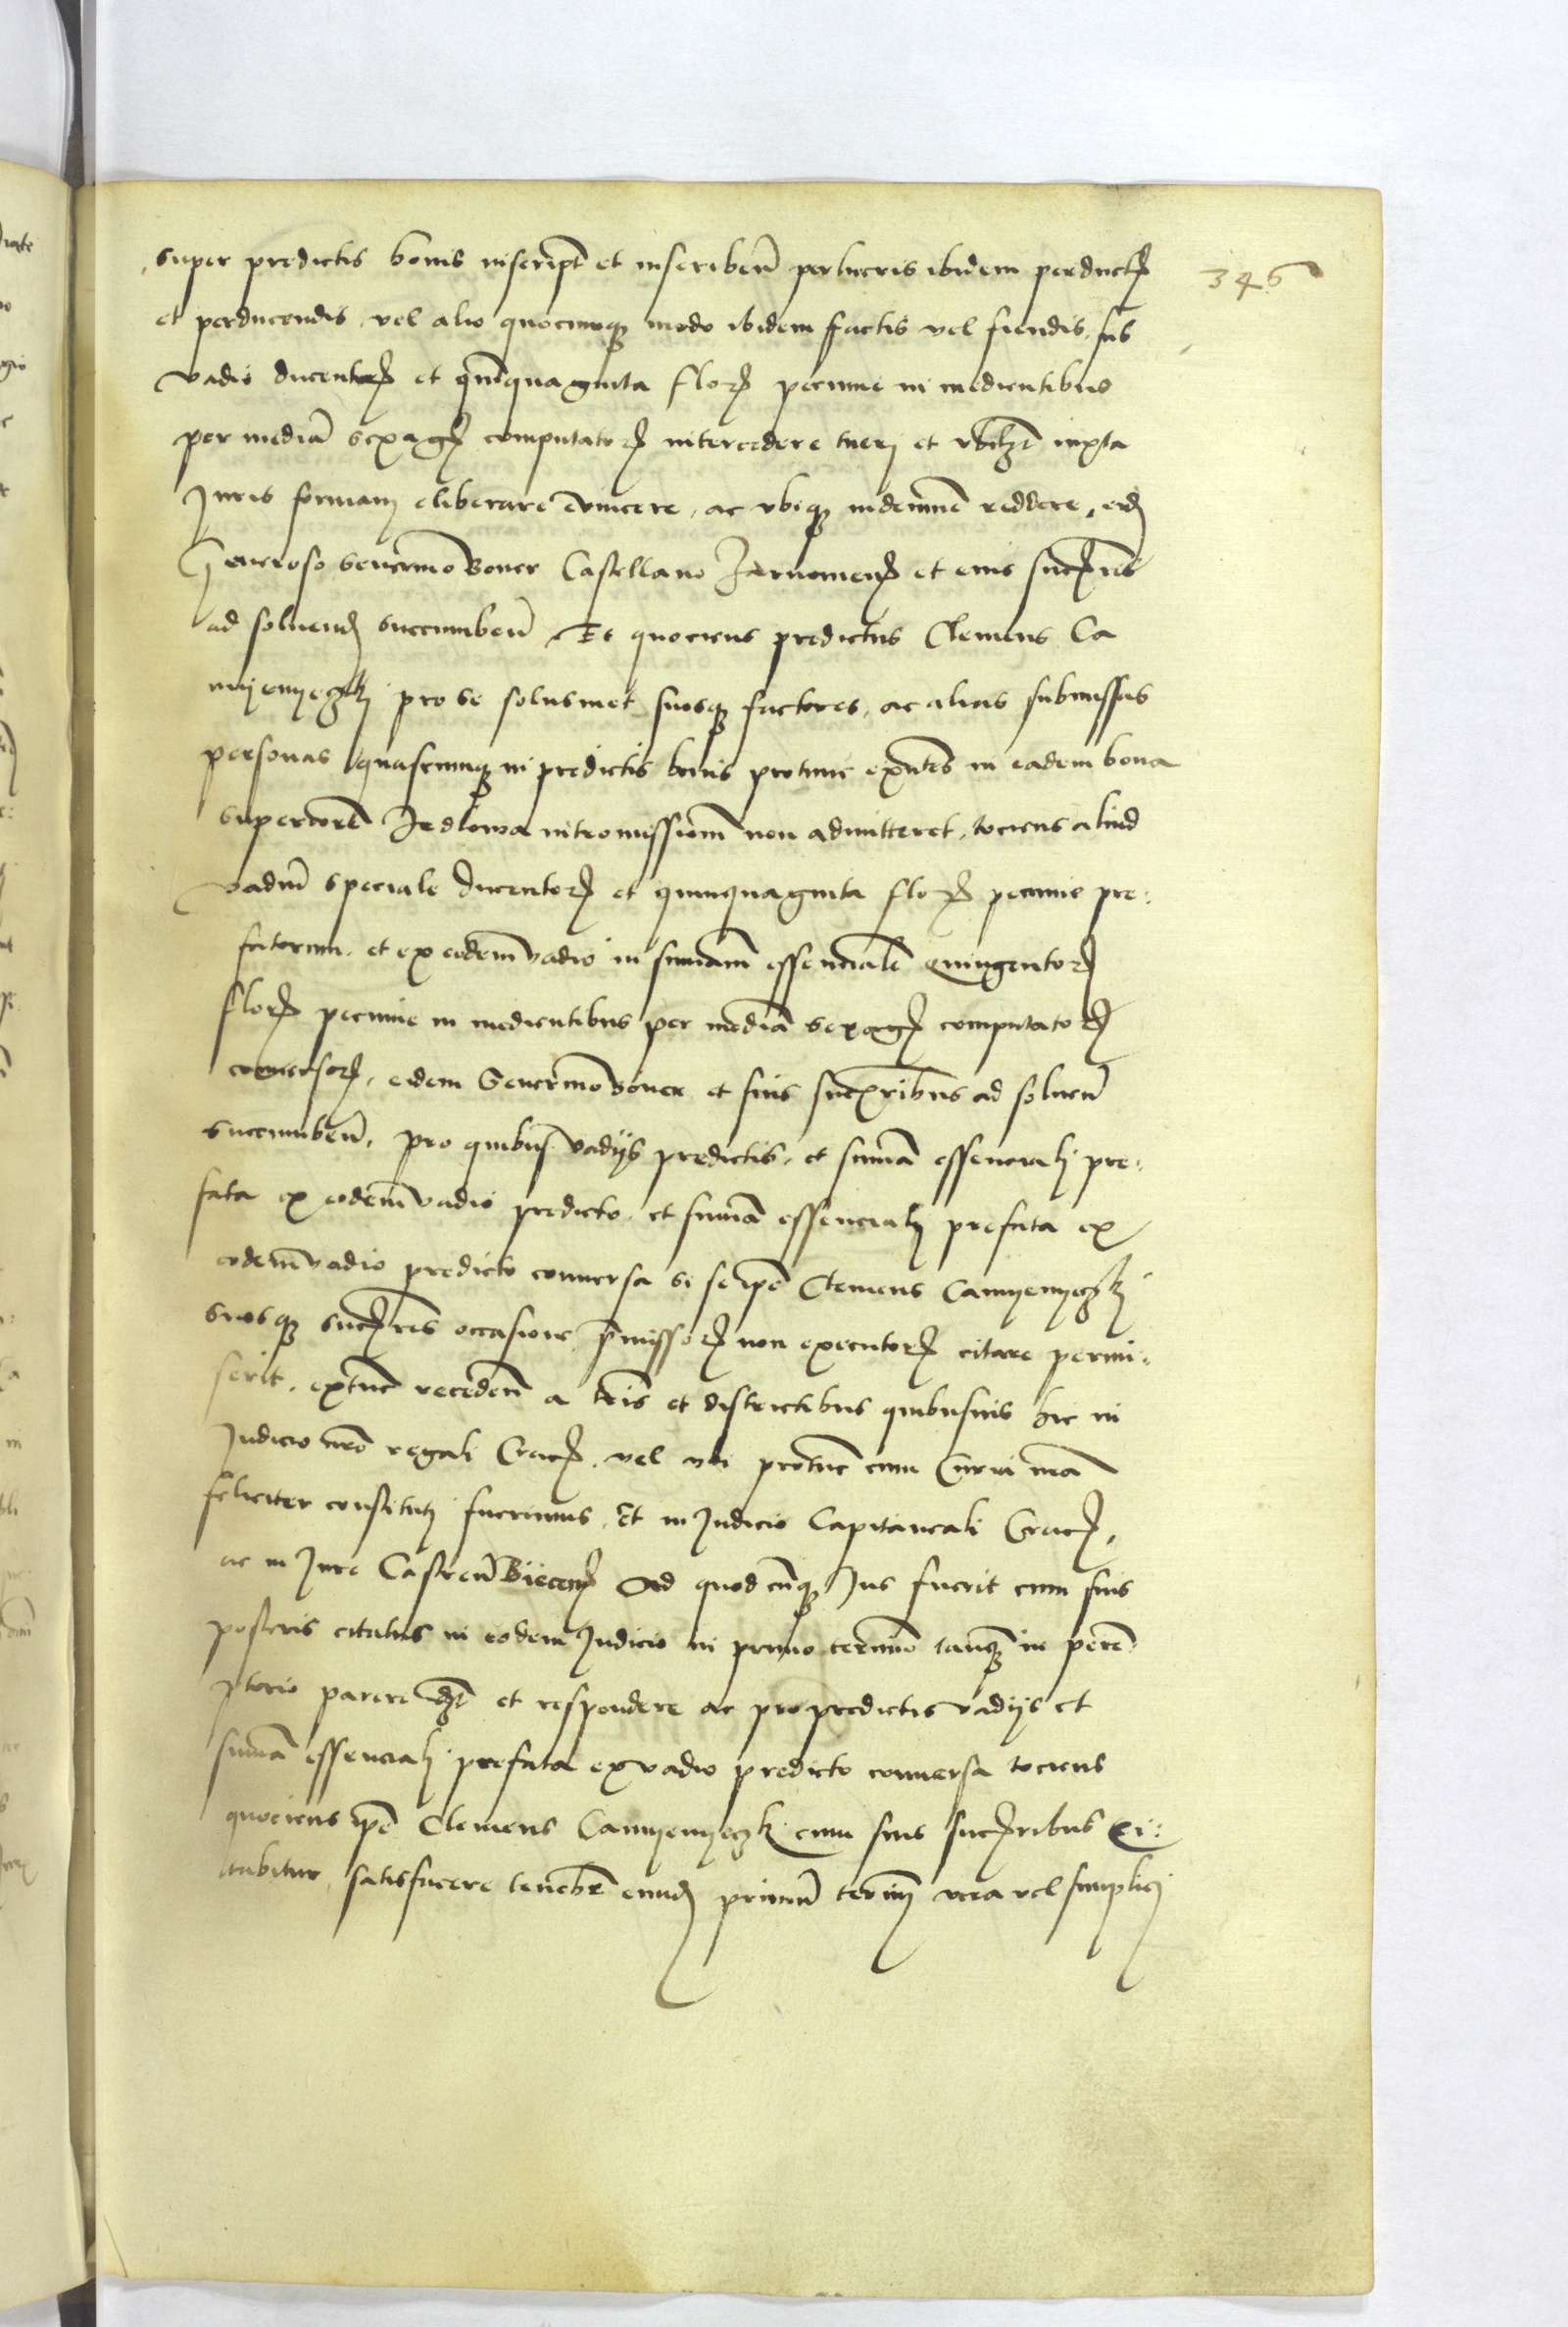 346
super predictis bonis inscript et inscriben per lucris ibidem perduct
et perducendis, vel alio quocunq modo ibidem factis vel fiendis, sub
vadio ducentor et quinquaginta flor pecunie in medientibus
per media sexag computator intercedere tueri et iuxta
Juris formam eliberare evincere, ac vbiq indemne reddere, eid
Generoso Severino Boner Castellano Zarnowien et eius succrib
ad soluend succumben Et quociens predictus Clemens Ca
myenyeczki pro se solusmet suosq factores, ac alias submissas
personas quascunq in predictis bonis protunc exntes in eadem bona
superiore Jedlowa intromissionem non admitteret, tociens aliud
vadiu speciale ducentor et quinquaginta flor pecunie pre
fatorum, et ex eodem vadio in summam essenciale quingentor
flor pecunie in medientibus per media sexag computator
conuersor, eidem Severino Boner et suis succribus ad soluen
succumben, pro quibus vadijs predictis, et suma essenciali pre
fata ex eodem vadio predicto, et suma essenciali prefata ex
eodem vadio predicto conuersa si se ipse Clemens Camyenyeczki
suosq succres occasione pmissor non executor citare permi
serit, extunc receden a tris et districtibus quibusuis hic in
Judicio nro regali Crac, vel vbi protunc cum Curia nra
feliciter constituti fuerimus, Et in Judicio Capitaneali Crac,
ac in Jure Castren Biecen Ad quodcunq Jus fuerit cum suis
posteris citatus in eodem Judicio in primo termino tanq in perem
ptorio parere et respondere ac pro predictis vadijs et
suma essenciali prefata ex vadio predicto conuersa tociens
quociens ipse Clemens Camyenyeczk cum suis succribus ci
tabitur, satisfacere eund primu termin vera vel simplici